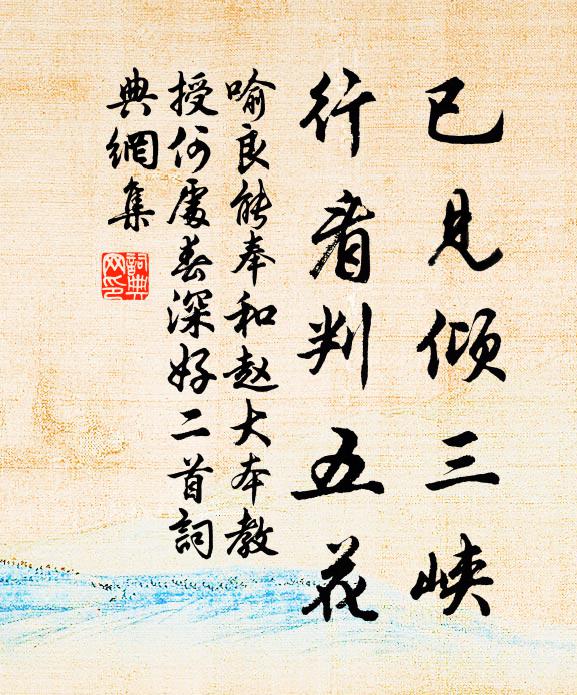 已见倾三峡
行看判五花
喻良能奉和赵大本教
授何处春深好二首词
典網集
詞典
网印